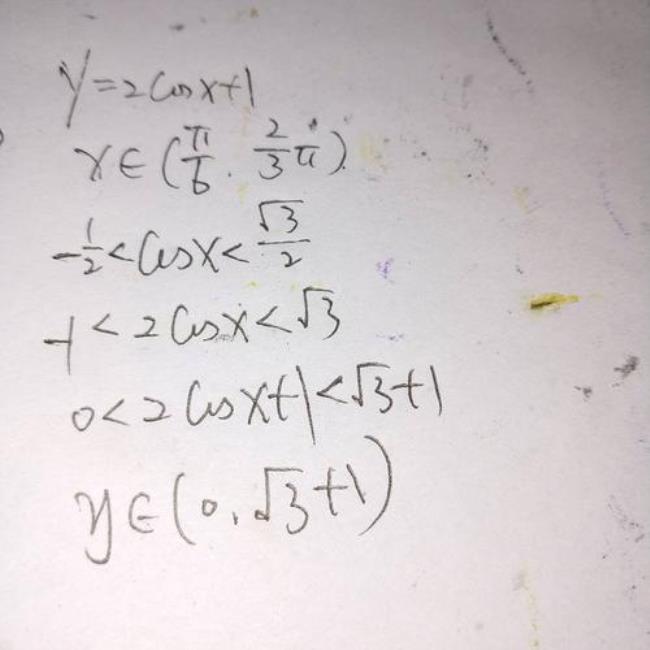 y=2cosx+1
x∈(π/6, 2/3π)
-1/2<cosx<√3/2
-1<2cosx<√3
0<2cosx+1<√3+1
y∈(0,√3+1)